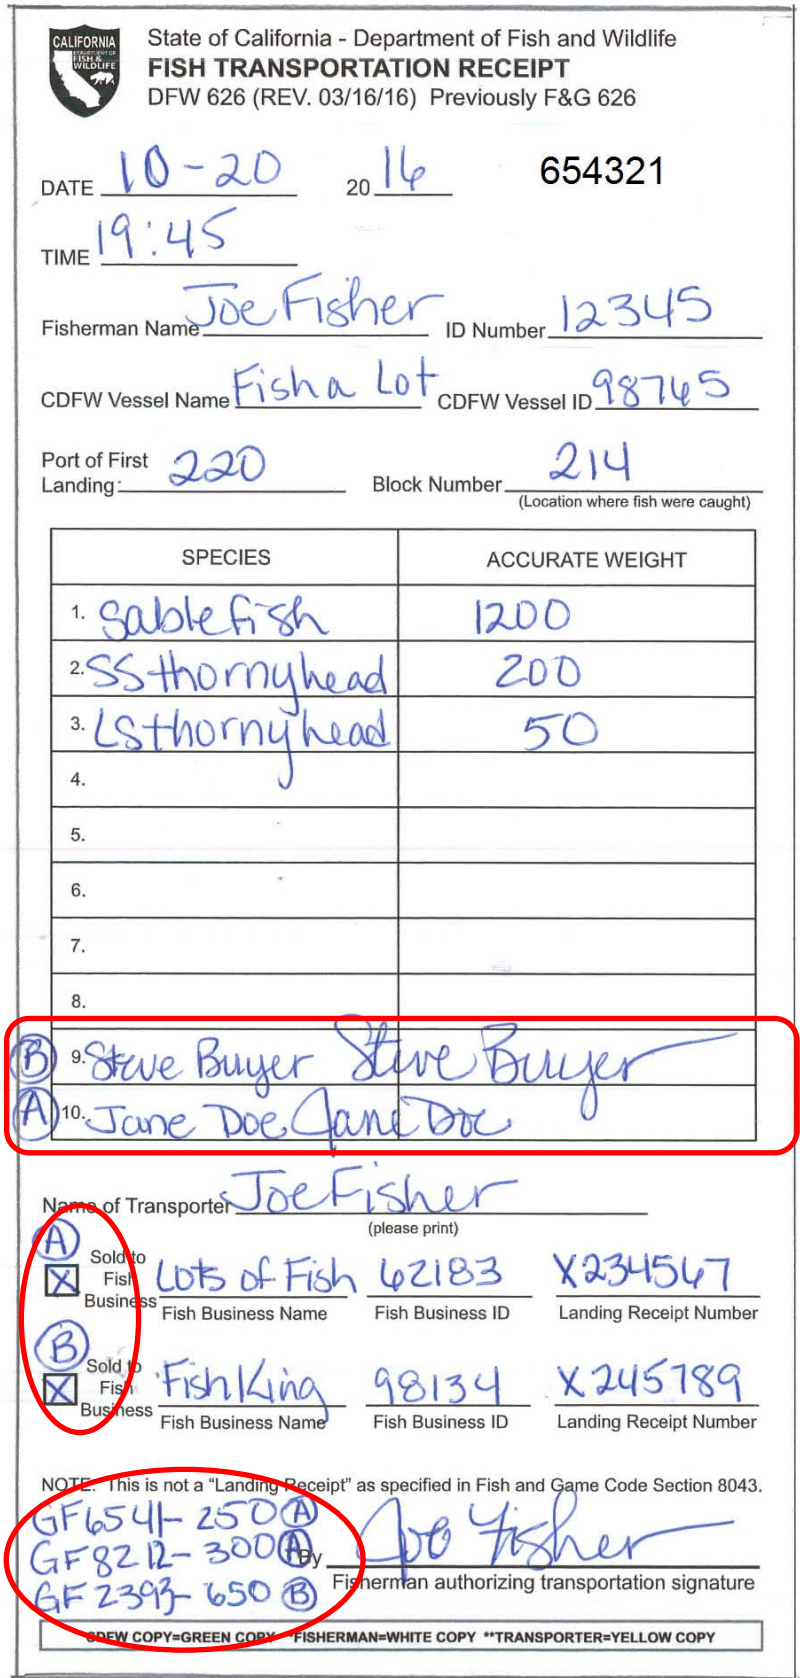 CALIFORNIA
DEPARTMENT OF
FISH &
WILDLIFE
State of California - Department of Fish and Wildlife
FISH TRANSPORTATION RECEIPT
DFW 626 (REV. 03/16/16) Previously F&G 626
DATE 10-20 2016 654321
TIME 19:45
Fisherman Name Joe Fisher ID Number 12345
CDFW Vessel Name Fish a Lot CDFW Vessel ID 98765
Port of First
Landing: 220 Block Number 214
(Location where fish were caught)
SPECIES ACCURATE WEIGHT
1. Sablefish 1200
2. SSthornyhead 200
3. LSthornyhead 50
4.
5.
6.
7.
8.
B 9. Steve Buyer Steve Buyer
A 10. Jane Doe Jane Doe
Name of Transporter Joe Fisher
(please print)
A
Sold to
Fish
Business X Lots of Fish 62183 X234567
Fish Business Name Fish Business ID Landing Receipt Number
B
Sold to
Fish
Business X Fish King 98134 X245789
Fish Business Name Fish Business ID Landing Receipt Number
NOTE: This is not a "Landing Receipt" as specified in Fish and Game Code Section 8043.
GF6541- 250 A
GF8212- 300 A By Joe Fisher
GF2393- 650 B
Fisherman authorizing transportation signature
*CDFW COPY=GREEN COPY *FISHERMAN=WHITE COPY **TRANSPORTER=YELLOW COPY